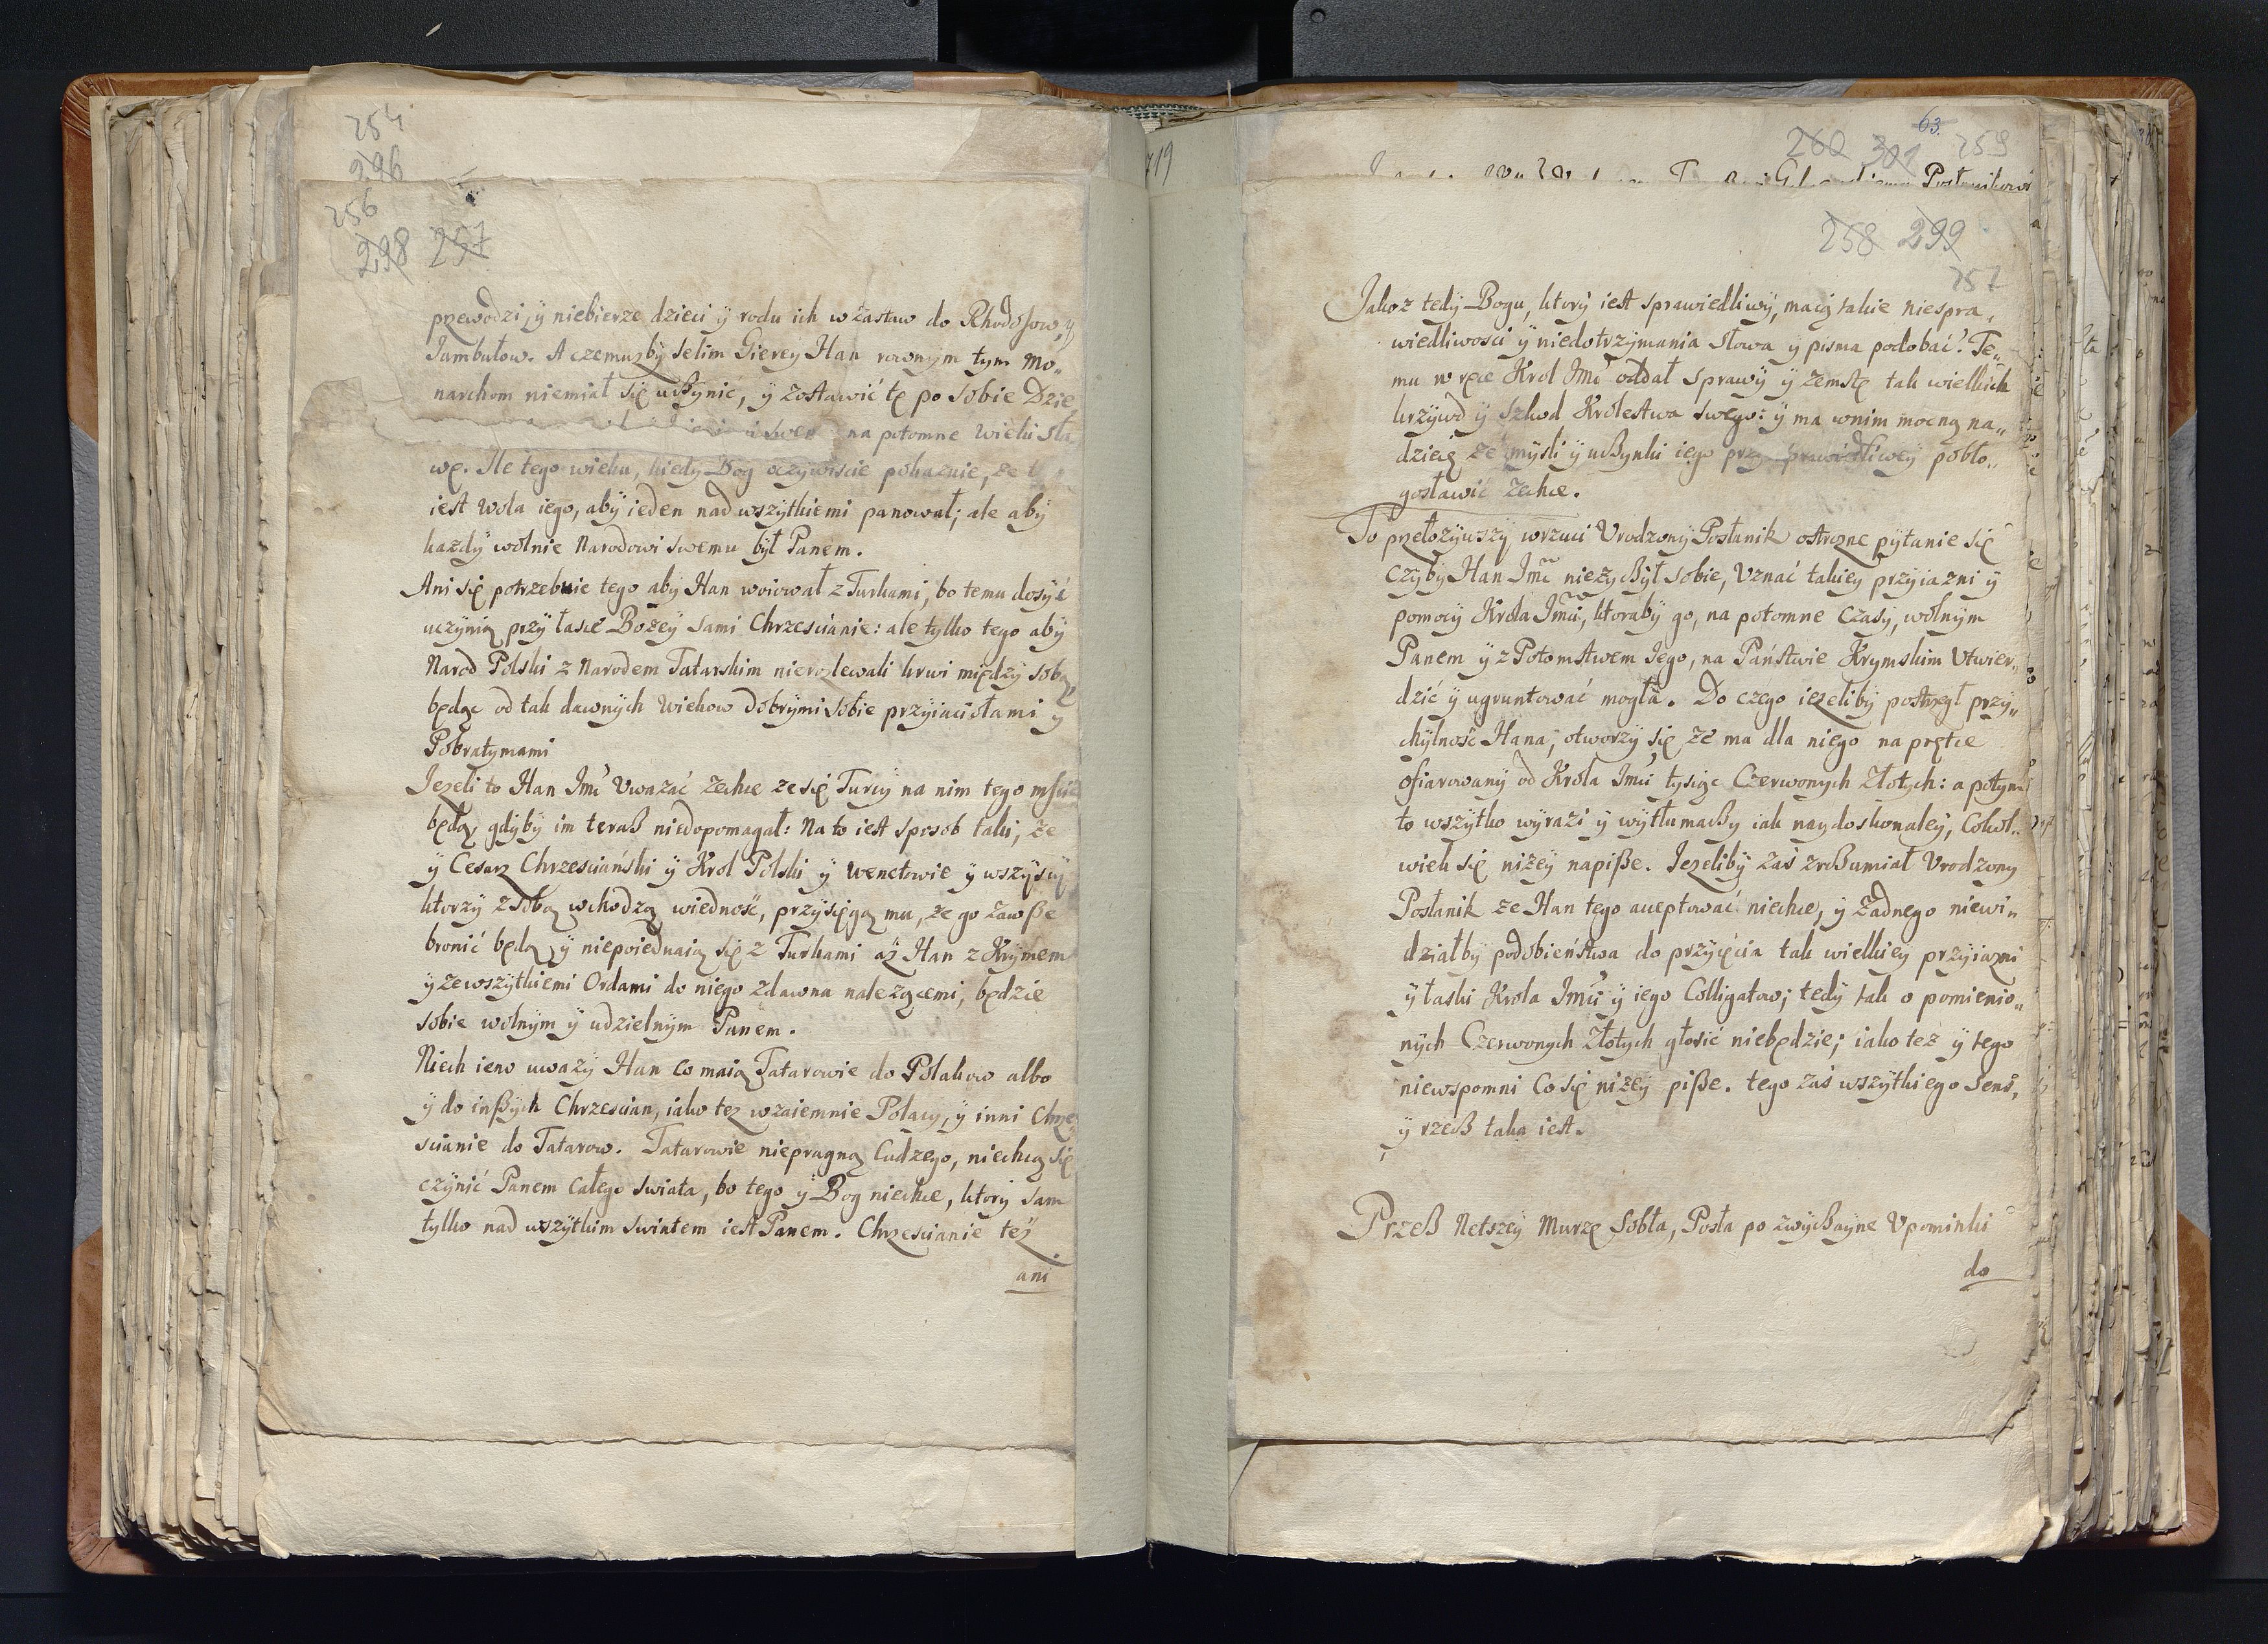 254
296
256
298 257
przewodzi, ÿ niebierze dzieci ÿ rodu ich w zastaw do Rhodosow, ÿ
Jambułow. A czemuzbÿ Selim Gierey Han rownym tym Mo„
narchom niemiał się uczÿnić, ÿ zostawić tę po sobie Dzie
na potomne wieki sła
wę. Ile tego wieku, kiedy Bog oczÿwiscie pokaznie, ze
iest wola iego, abÿ ieden nad wszÿtkiemi panował; ale abÿ
kazdÿ wolnie Narodowi swemu bÿł Panem.
Ani się potrzebuie tego abÿ Han woiował z Turkami, bo temu dosÿć
uczÿnią przÿ łasce Bozeÿ sami Chrzescianie: ale tylko tego abÿ
Narod Polski z Narodem Tatarskim nierozlewali krwi międzÿ sobą
będąc od tak dawnÿch wiekow dobrÿmi sobie przÿiaciołami ÿ
Pobratymami
Jezeli to Han Jmć Uwazać zechce ze się Turcÿ na nim tego mscić
będą, gdÿbÿ im teraß niedopomagał: Na to iest sposob taki, ze
ÿ Cesarz Chrzesciański ÿ Krol Polski ÿ Wenetowie ÿ wszÿscÿ
ktorzÿ z sobą wchodzą wiedność, przÿsięgą mu, ze go zawße
bronić będą ÿ niepoiednaią się z Turkami aż Han z Krÿmem
ÿ zewszÿtkiemi Ordami do niego zdawna nalezącemi, będzie
sobie wolnÿm ÿ udzielnÿm Panem.
Niech ieno uwazÿ Han co maią Tatarowie do Polakow albo
ÿ do inßÿch Chrzescian, iako tez wzaiemnie Polacÿ, ÿ inni Chrze„
scianie do Tatarow. Tatarowie niepragną Cudzego, niechcą się
czÿnić Panem całego swiata, bo tego ÿ Bog niechce, ktorÿ sam
tylko nad wszÿtkim swiatem iest Panem. Chrzescianie też
ani
719
63.
260 301 259
Posłanikowi
258 299
257
Jakoz tedÿ Bogu, ktorÿ iest sprawiedliwÿ, maią takie niespra„
wiedliwosci ÿ niedotrzÿmania słowa ÿ pisma podobać? Te„
mu w ręce Krol Jmć oddał sprawÿ ÿ zemstę tak wielkich
krzÿwd ÿ szkod Krolestwa swego: ÿ ma wnim mocną na„
dzieię ze mÿsli ÿ uczÿnki iego przÿ sprawiedliweÿ pobło„
gosławić zechce.
To przełozÿwszÿ wrzuci Urodzonÿ Posłanik ostrozne pÿtanie się
Czÿbÿ Han Jmć nieżÿczÿł sobie, Uznać takieÿ przÿiazni ÿ
pomocÿ Krola Jmći, ktorabÿ go, na potomne czasÿ, wolnÿm
Panem ÿ z Potomstwem Jego, na Państwie Krymskim Utwier„
dzić ÿ ugruntować mogła. Do czego iezelibÿ postrzegł przÿ„
chÿlność Hana, otworzÿ się ze ma dla niego na prętce
ofiarowanÿ od Krola Jmći tÿsiąc Czerwonych Złotÿch: a potÿm
to wszÿtko wÿrazi ÿ wÿtłumaczÿ iak naÿdoskonaleÿ, Cokol„
wiek się nizeÿ napiße. Jezelibÿ zaś zrozumiał Urodzonÿ
Posłanik ze Han tego acceptować niechce, ÿ żadnego niewi„
działbÿ podobieństwa do przÿięcia tak wielkieÿ przÿiazni
ÿ łaski Krola Jmći ÿ iego Colligatow; tedÿ tak o pomienio„
nÿch Czerwonych Złotÿch głosić niebędzie; iako tez ÿ tego
niewspomni Co się niżeÿ piße. tego zaś wszÿtkiego Sens,
ÿ rzecz taka iest.
Przeß Netszeÿ Murzę Sobla, Posła po zwÿczaÿne Upominki
do